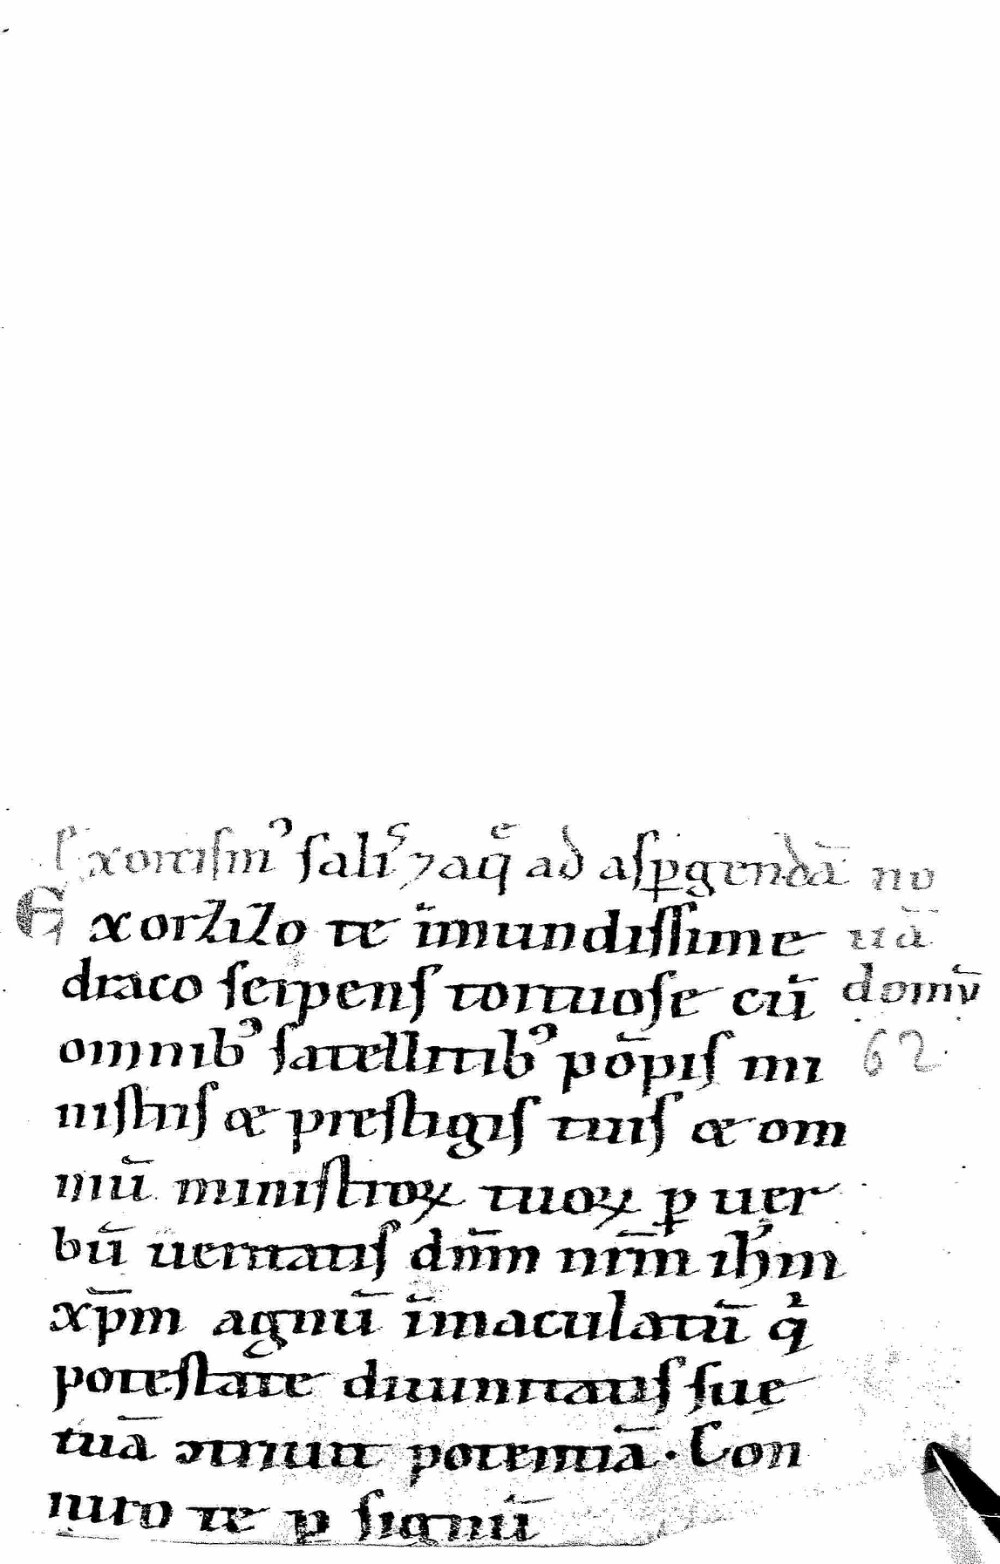 Exorcism᾽ saliſ ⁊ aq̄ ad aſꝑgendā no
Exorzizo te īmundiſſime uā
draco ſerpenſ tortuoſe cū domū
omnib᾽ ſatellitib᾽ pōpiſ mi 62
niſtriſ & preſtigiſ tuiſ & om
niū miniſtroꝝ tuoꝝ ꝑ uer
bū ueritatiſ dn̄m nr̄m ih̄m
xp̄m agnū īmaculatū qͥ
poteſtate diuinitatiſ ſuę
tuā ↄtriuit potentiā · Con
iuro te ꝑ ſignū